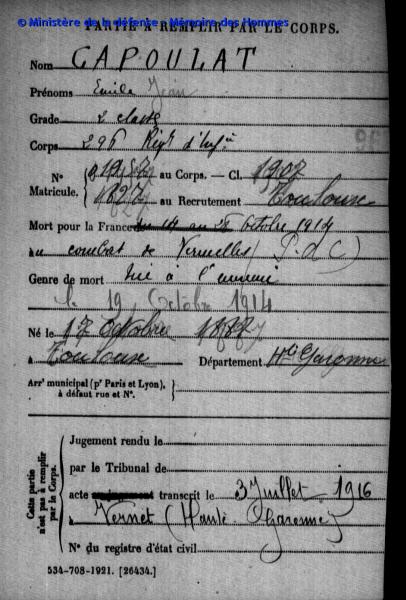 © Ministère de la défense - Mémoire des Hommes
PARTIE A REMPLIR PAR LE CORPS.
Nom CAPOULAT
Prénoms Emile Jean
Grade 2e classe
Corps 296 Régt d'Infie
N° Matricule. au Corps. — Cl. 1907
1827 au Recrutement Toulouse
Mort pour la France du 14 au 25 Octobre 1914
au combat de Vermelles (P. d. C)
Genre de mort tué à l'ennemi
le 19 Octobre 1914
Né le 17 Octobre 1887
à Toulouse Département Hte Garonne
Arrt municipal (pr Paris et Lyon), à défaut rue et N°.
Cette partie n'est pas à remplir par le Corps.
Jugement rendu le
par le Tribunal de
acte ou jugement transcrit le 3 Juillet 1916
à Vernet (Haute-Garonne)
N° du registre d'état civil
534-708-1921. [26434.]